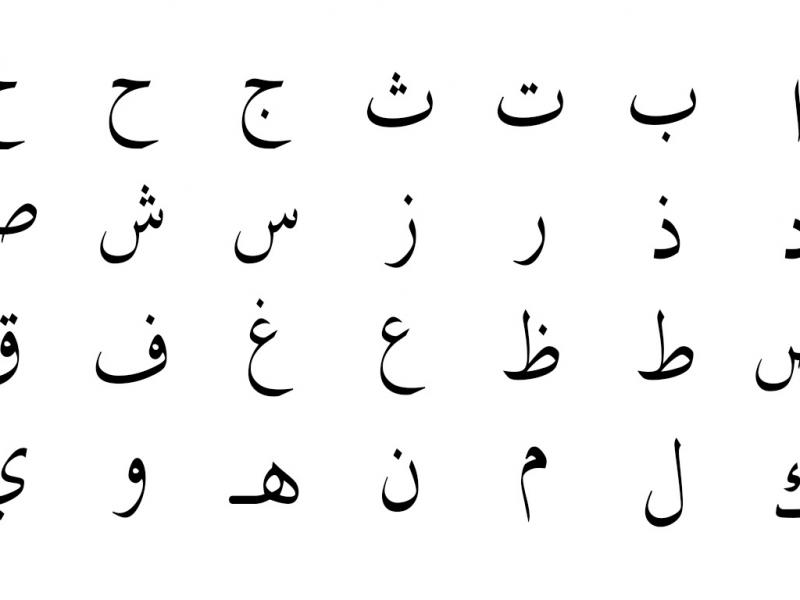 ا ب ت ث ج ح
د ذ ر ز س ش ص
ط ظ ع غ ف ق
ك ل م ن هـ و ي